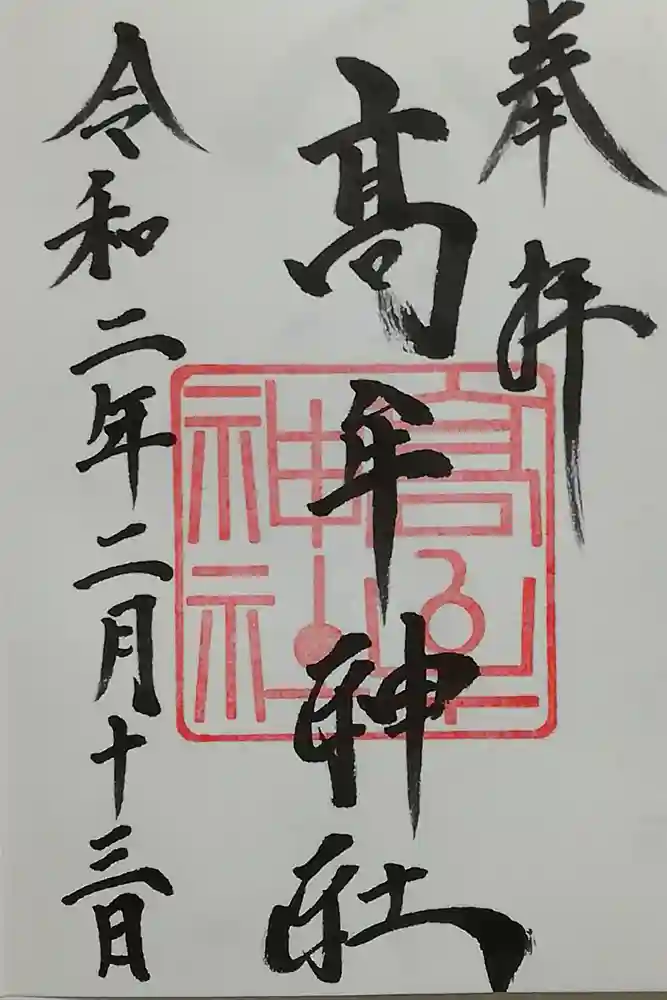 奉拝
高牟神社
令和二年二月十三日
高牟
神社